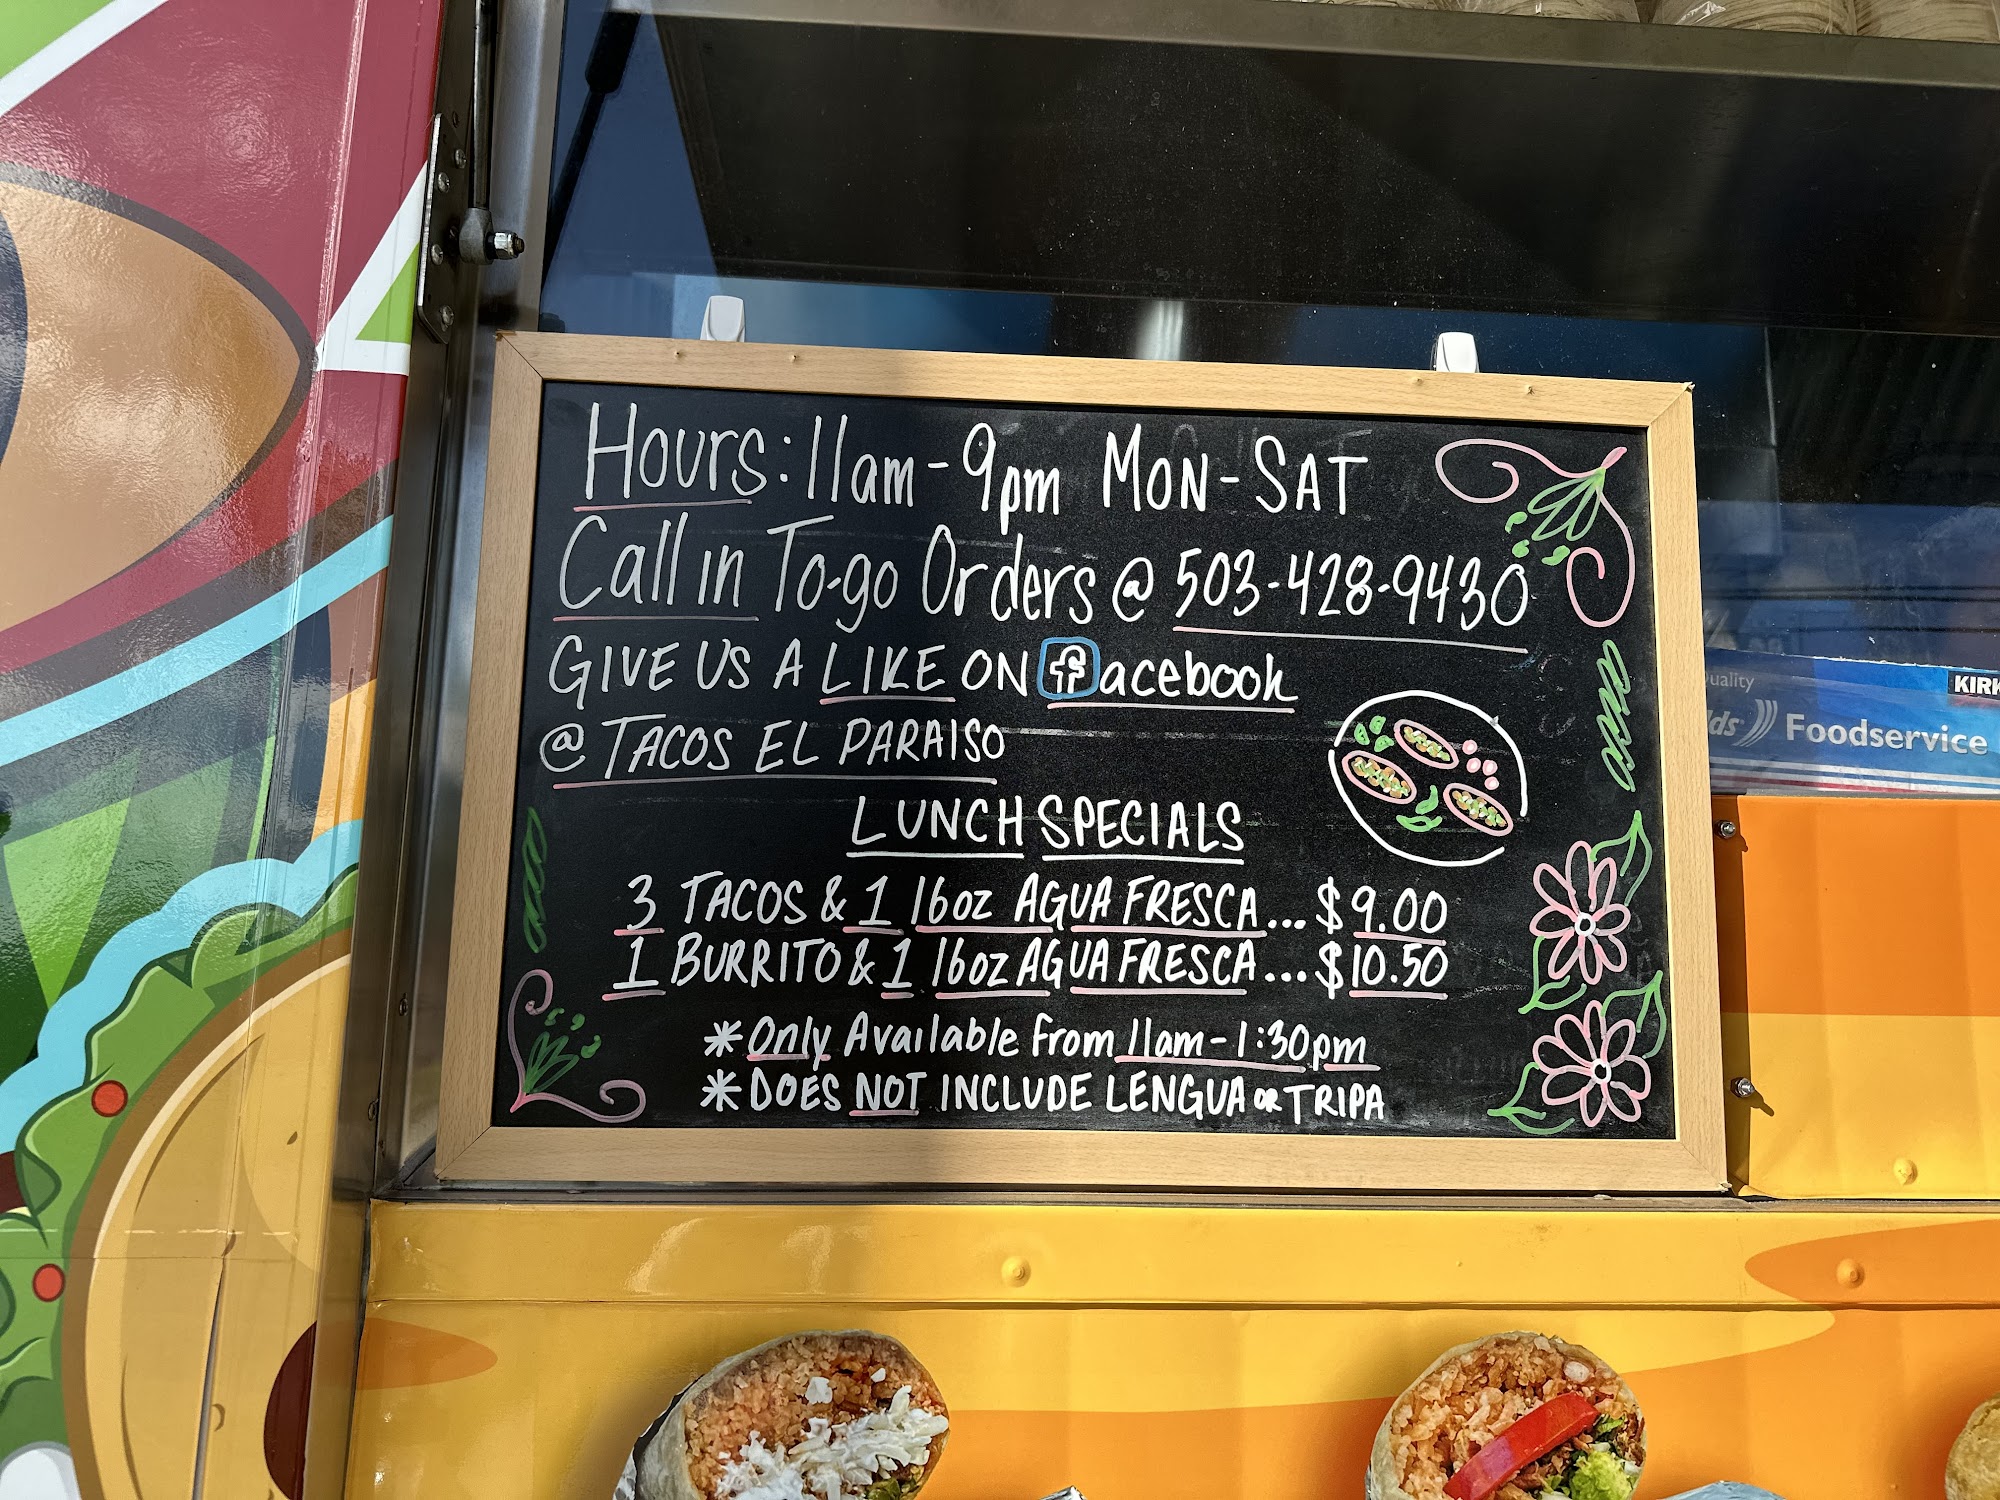 Hours: 11am - 9pm MON-SAT
Call in To-go Orders @ 503-428-9430
GIVE US A LIKE ON facebook
@ TACOS EL PARAISO
LUNCH SPECIALS
3 TACOS & 1 16oz AGUA FRESCA... $9.00
1 BURRITO & 1 16oz AGUA FRESCA... $10.50
*Only Available from 11am-1:30pm
*DOES NOT INCLUDE LENGUA OR TRIPA
Foodservice